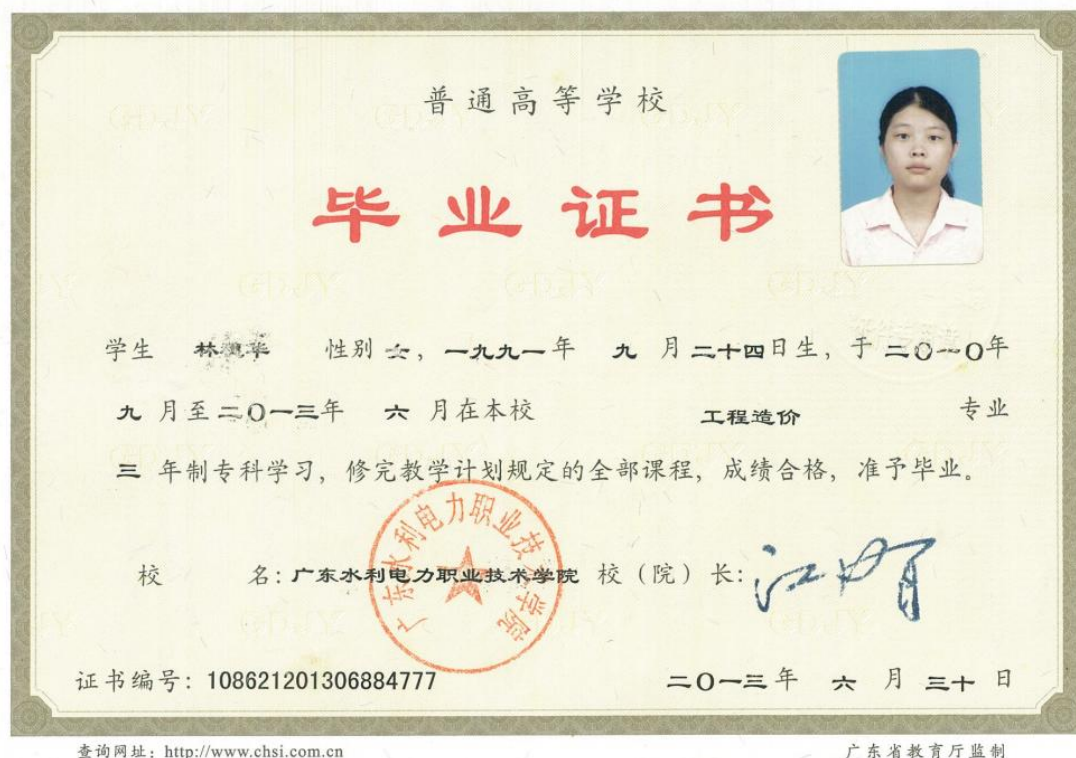 普通高等学校
毕业证书
学生 林 华 性别 女，一九九一年 九 月 二十四日生，于 二〇一〇年
九 月至 二〇一三年 六 月在本校 工程造价 专业
三 年制专科学习，修完教学计划规定的全部课程，成绩合格，准予毕业。
广东水利电力职业技术学院
校 名：广东水利电力职业技术学院 校（院）长：
证书编号：108621201306884777 二〇一三年 六 月 三十 日
查询网址：http://www.chsi.com.cn 广东省教育厅监制